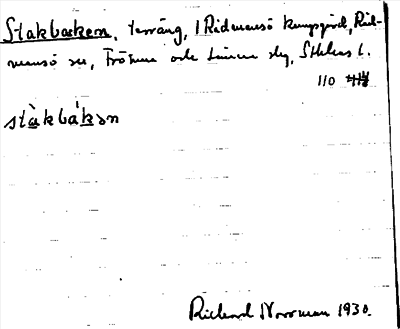 Stakbacken, terräng, 1 Rådmansö kungsgård, Råd-
mansö sn, Frötuna och Länna slg, Sthlms l.
110
stàkbákən
Richard Norrman 1930.